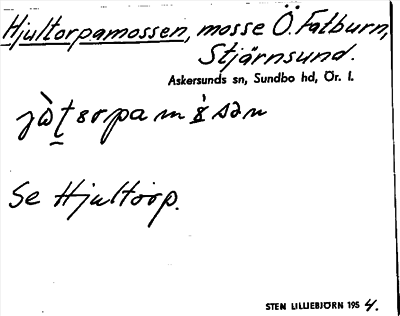 Hjultorpamossen, mosse Ö. Fatburn,
Stjärnsund.
Askersunds sn, Sundbo hd, Ör. l.
Se Hjultorp.
STEN LILLIEBJÖRN 1954.